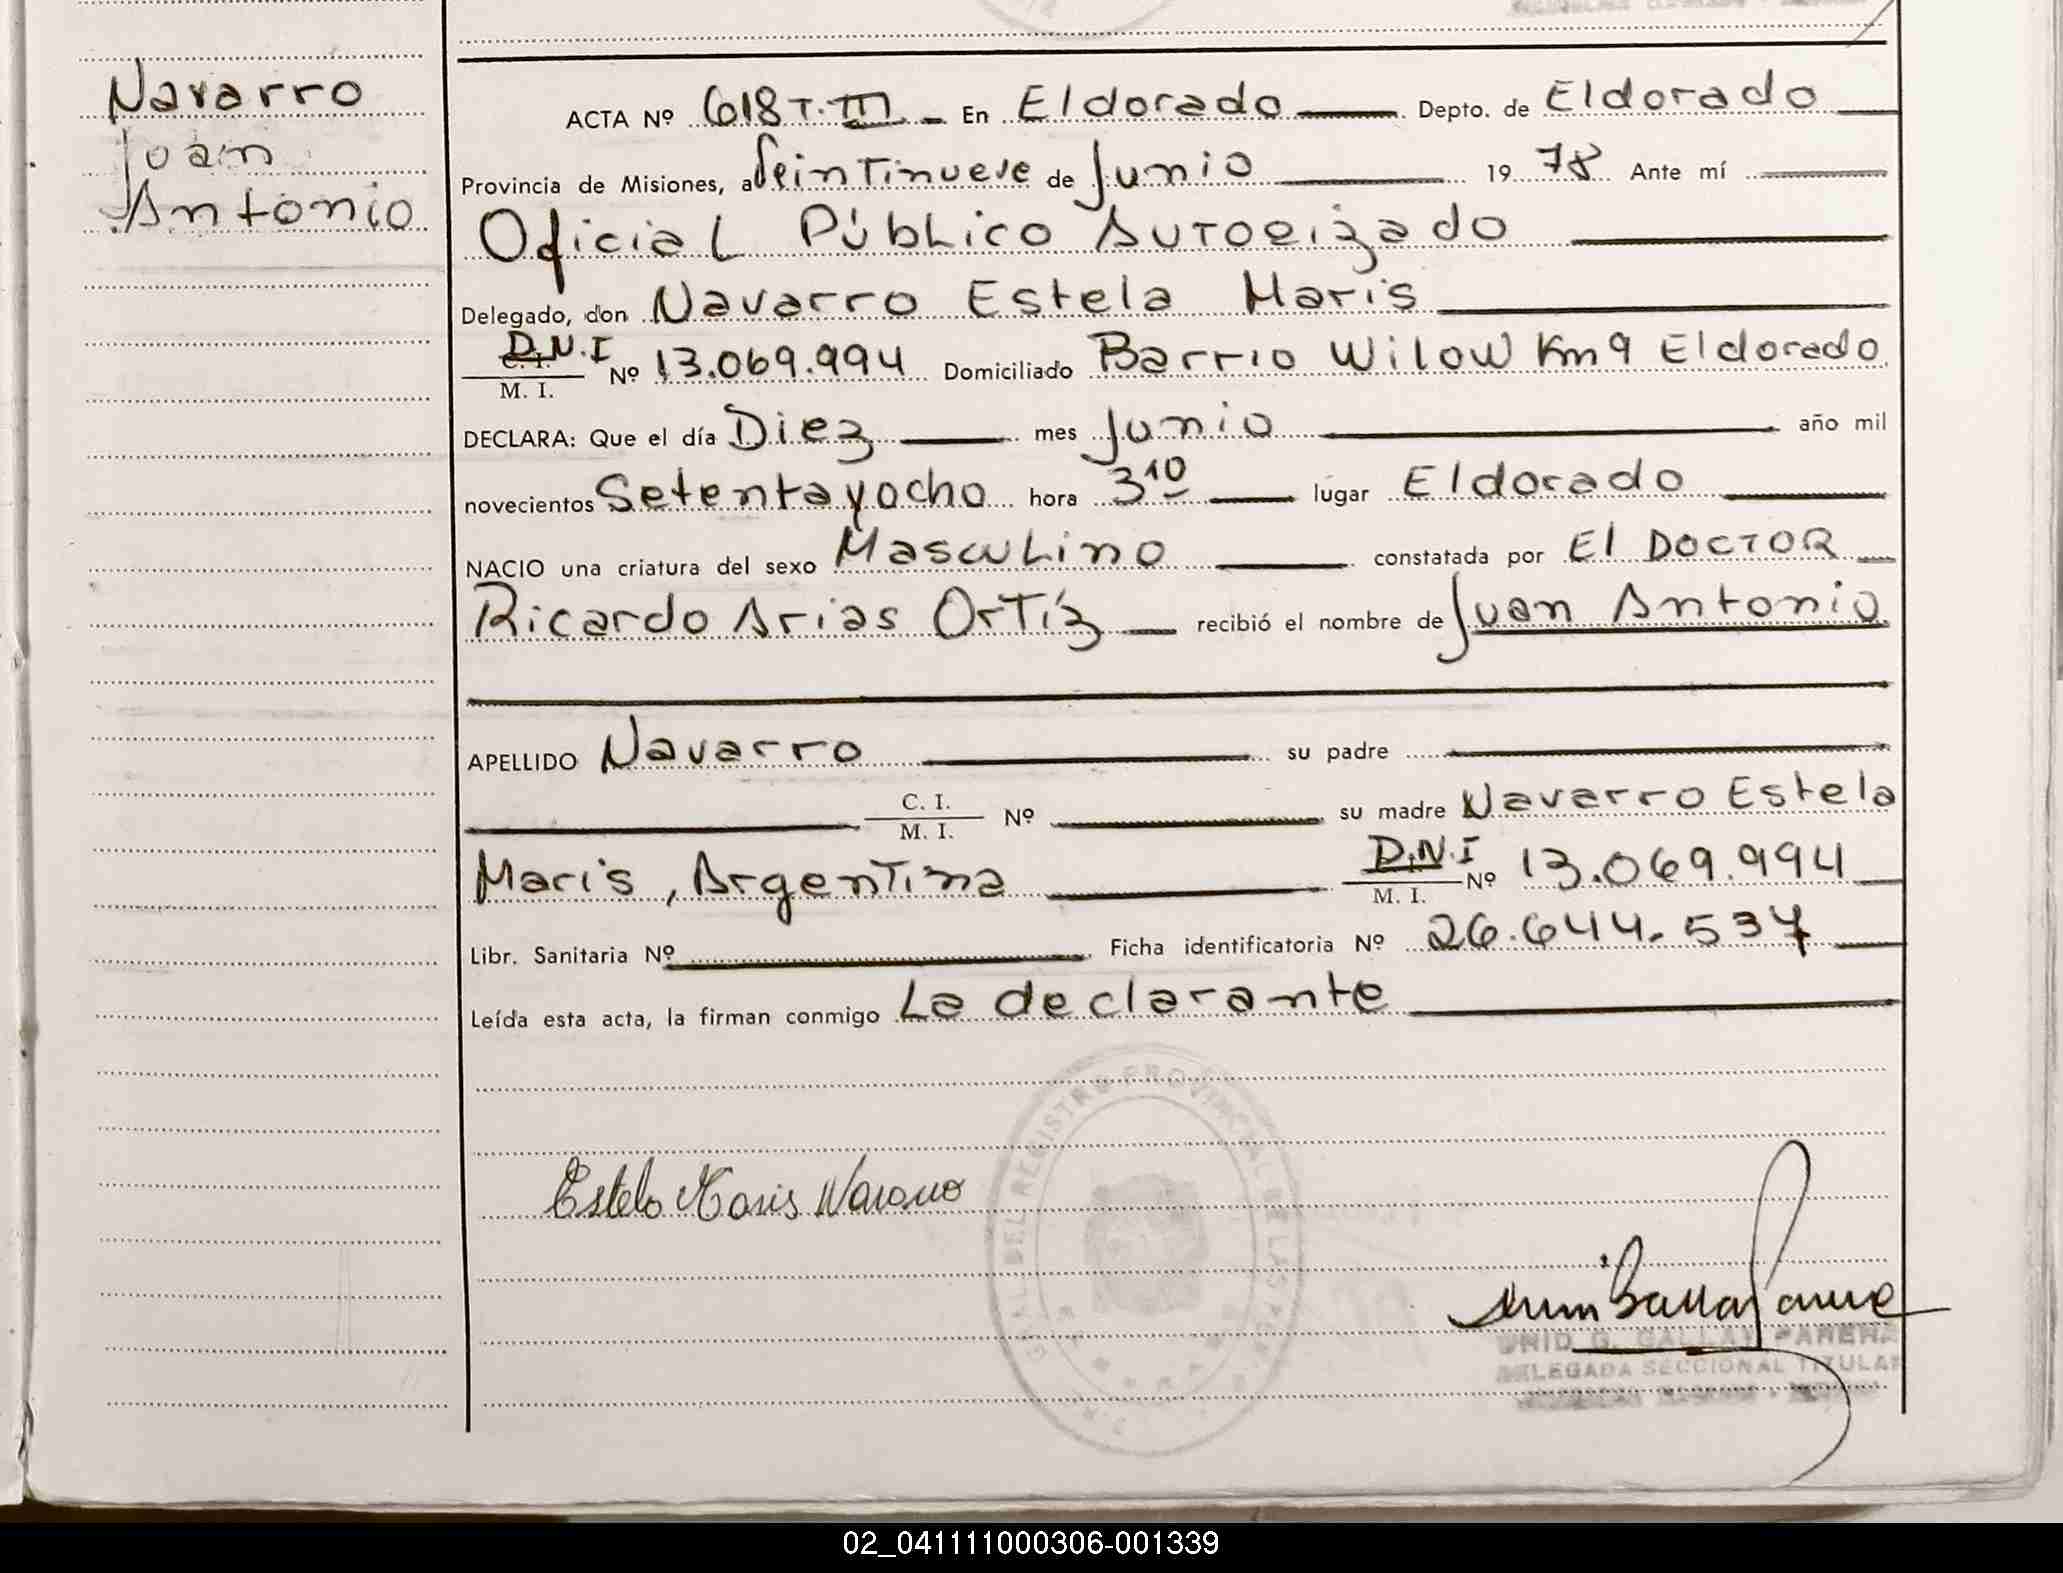 Navarro
Juan
Antonio
ACTA Nº 618 T. III En Eldorado Depto. de Eldorado
Provincia de Misiones, a Veintinueve de Junio 19 78 Ante mí
Oficial Público Autorizado
Delegado, don Navarro Estela Maris
D.N.I
M. I. Nº 13.069.994 Domiciliado Barrio Wilow Km 9 Eldorado
DECLARA: Que el día Diez mes Junio año mil
novecientos Setenta y ocho hora 3 10 lugar Eldorado
NACIO una criatura del sexo Masculino constatada por El Doctor
Ricardo Arias Ortíz recibió el nombre de Juan Antonio
APELLIDO Navarro su padre
C. I.
M. I. Nº su madre Navarro Estela
Maris, Argentina D.N.I
M. I. Nº 13.069.994
Libr. Sanitaria Nº Ficha identificatoria Nº 26.644.537
Leída esta acta, la firman conmigo La declarante
GRAL DEL REGISTRO PROVINCIAL DE LAS
Estela Maris Navarro
G. GALLAY PARERA
DELEGADA SECCIONAL TITULAR
02_041111000306-001339